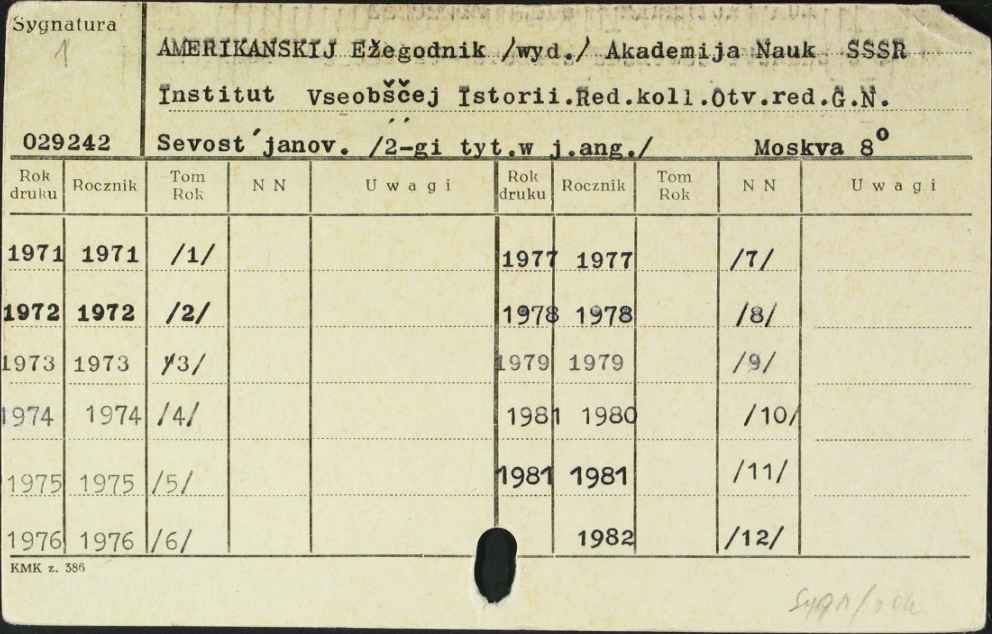 Sygnatura
1
AMERIKANSKIJ Ežegodnik /wyd./ Akademija Nauk SSSR
Institut Vseobščej Istorii.Red.koll.Otv.red.G.N.
029242 Sevost´janov. /2-gi tyt.w j.ang./ Moskva 8°
Rok druku Rocznik Tom Rok N N U w a g i Rok druku Rocznik Tom Rok N N U w a g i
1971 1971 /1/ 1977 1977 /7/
1972 1972 /2/ 1978 1978 /8/
1973 1973 /3/ 1979 1979 /9/
1974 1974 /4/ 1981 1980 /10/
1975 1975 /5/ 1981 1981 /11/
1976 1976 /6/ 1982 /12/
KMK z. 386